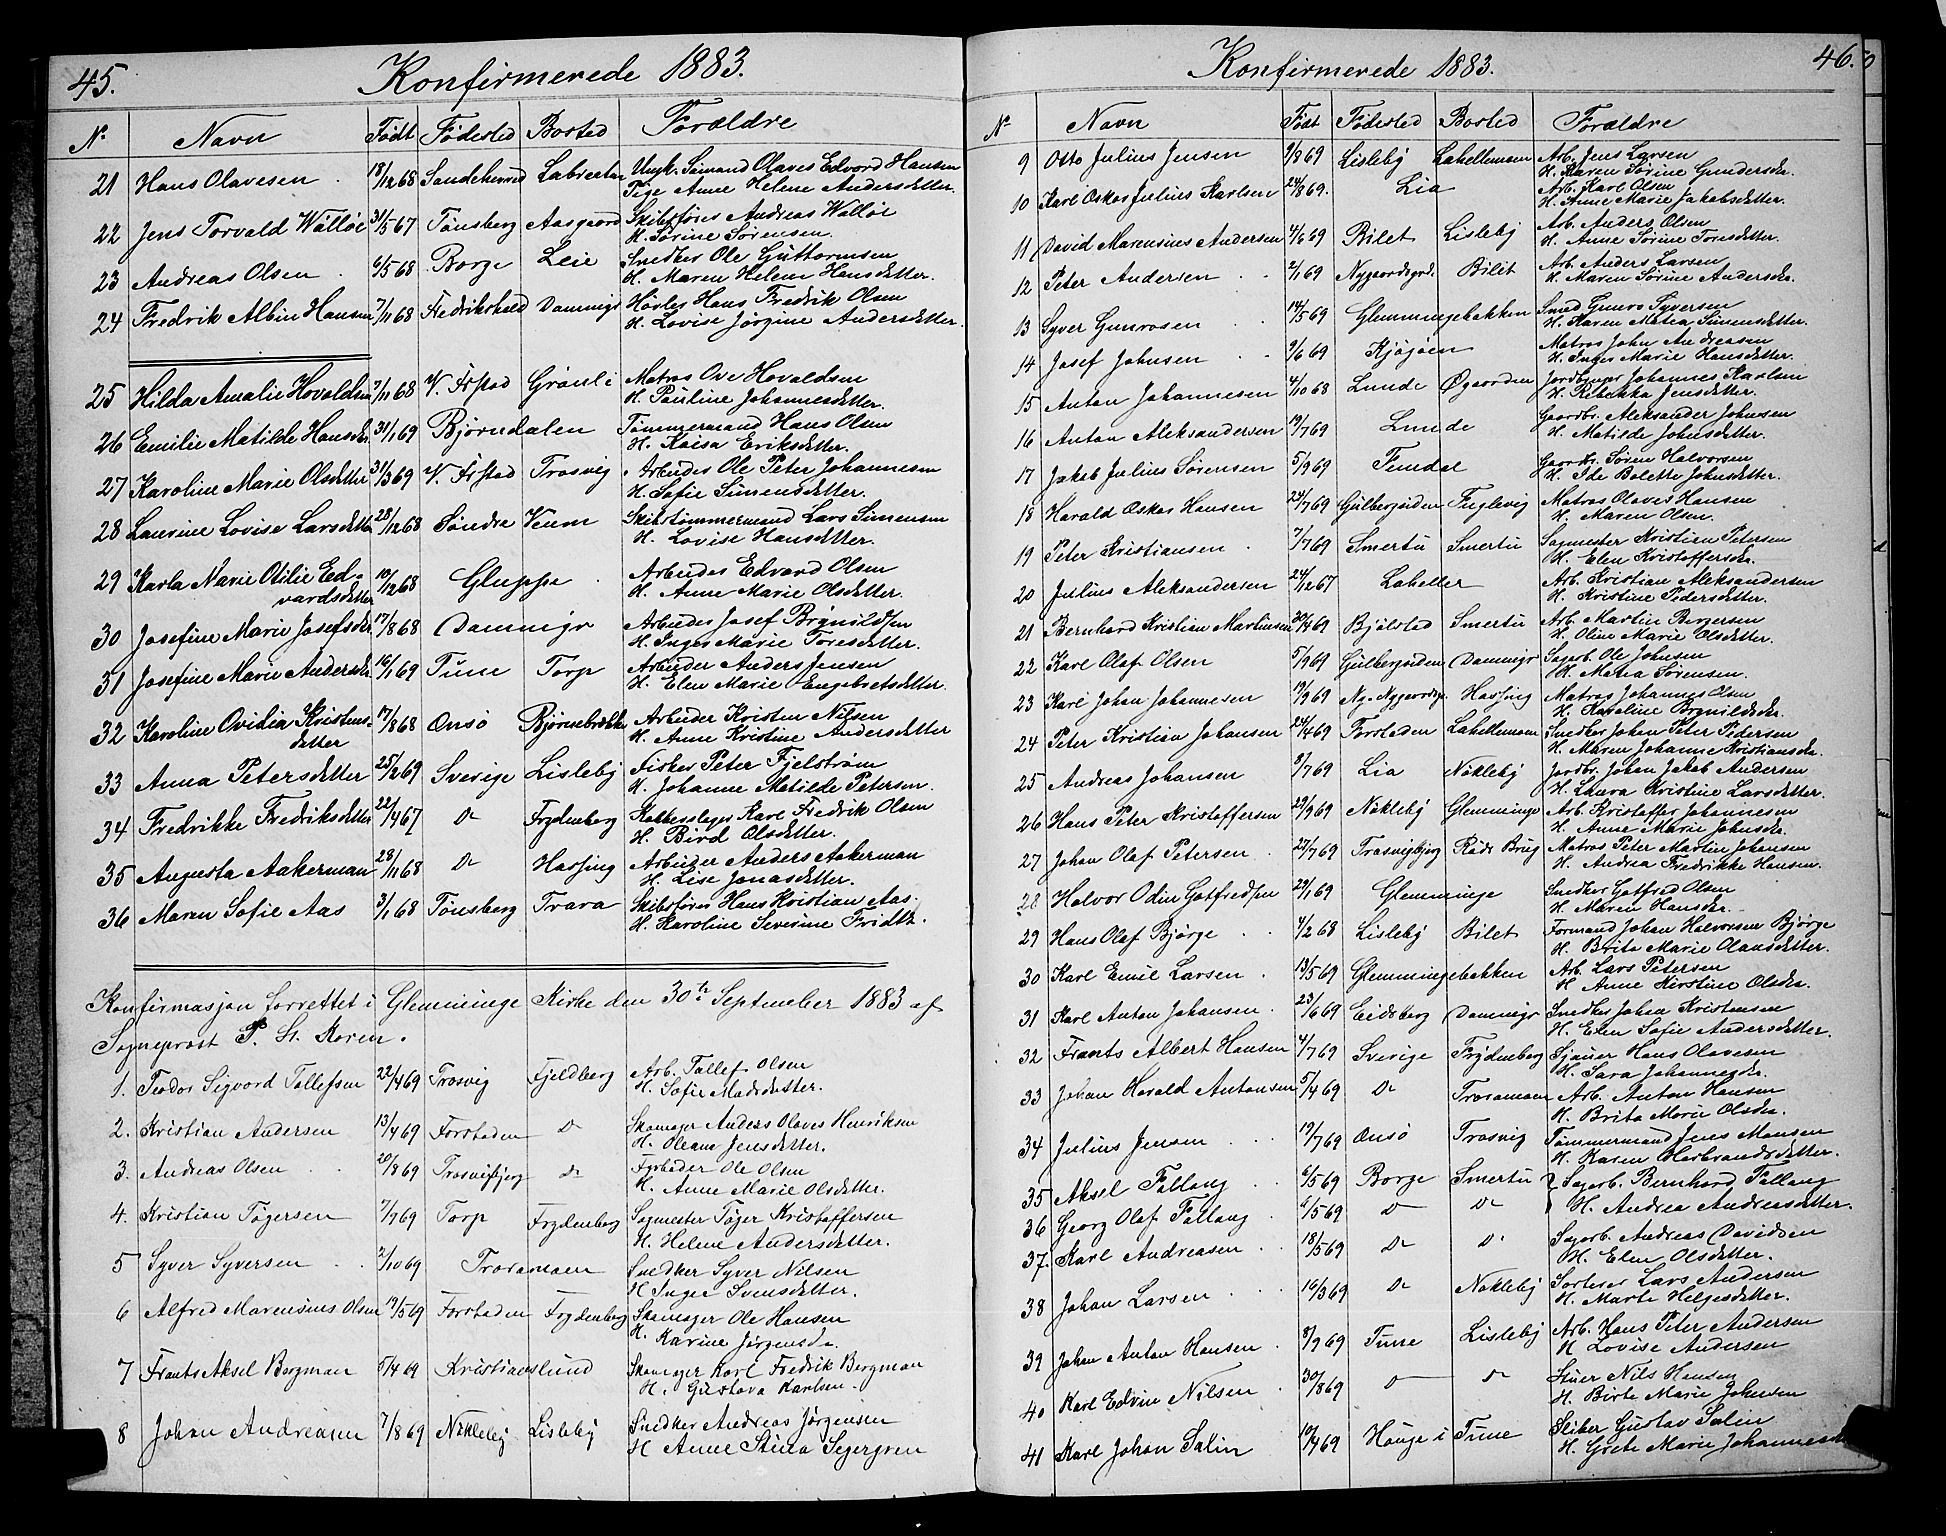 45.
Konfirmerede 1883.
No Navn Født Fødested Bosted Forældre
21 Hans Olavesen . 18/12 68 Sandeherred Labresten Ungk. Sømand Olaves Edvard Hansen
Pige Anne Helene Andersdetter.
22 Jens Torvald Walløe 31/5 67 Tønsberg Aasgaard Skibsfører Andreas Walløe
H. Sørine Sørensen.
23 Andreas Olsen . 6/5 68 Borge Leie Snedker Ole Guttormsen
H. Maren Helene Hansdetter.
24 Fredrik Albin Hansen 7/11 68 Fredrikshald Dammigr Høvler Hans Fredrik Olsen
H. Lovise Jørgine Andersdetter.
25 Hilda Amalie Hovaldsen 2/11 68 V. Frstad Grønli Matros Ove Hovaldsen
H. Pauline Johannesdetter.
26 Emilie Matilde Hansdr. 31/1 69 Bjørndalen Tømmermand Hans Olsen
H. Kaisa Eriksdetter.
27 Karoline Marie Olsdetter 31/3 69 V. Frstad Trosvig Arbeider Ole Peter Johannesen
H. Sofie Simensdetter.
28 Laurine Lovise Larsdetter 28/12 68 Søndre Veum Skibstømmermand Lars Simensen
H. Lovise Hansdetter.
29 Karla Marie Otilie Ed- 10/12 68 Gluppe . Arbeider Edvard Olsen
vardsdetter H. Anne Marie Olsdetter.
30 Josefine Marie Josefsdr. 17/8 68 Dammigr Arbeider Josef Brynildsen
H. Inger Marie Toresdetter.
31 Josefine Marie Andersdr. 16/1 69 Tune Torp Arbeider Anders Jensen
H. Elen Marie Engebretsdetter.
32 Karoline Ovidia Kristens- 17/8 68 Onsø Bjørnebrække Arbeider Kristen Nilsen
detter H. Anne Kristine Andersdetter
33 Anna Petersdetter 25/2 69 Sverige Lisleby Fisker Peter Fjelstrøm
H. Johanne Matilde Petersen.
34 Fredrikke Fredriksdetter 22/4 67 Do Frydenberg Karl Fredrik Olsen
H. Bird Olsdetter.
35 Augusta Aakerman 28/11 68 Do Hassing Arbeider Anders Aakerman
H. Lise Jonasdetter.
36 Maren Sofie Aas 3/1 68 Tønsberg Trara Skibsfører Hans Kristian Aas.
H. Karoline Severine
Konfirmasjon forrettet i Glemminge Kirke den 30te September 1883 af
Sogneprost P. St. Koren.
1. Teodor Sigvord Tollefsen 22/4 69 Trosvig Fjeldberg Arb. Tollef Olsen
H. Sofie Madsdetter.
2. Kristian Andersen 13/4 69 Forstaden Do Skomager Anders Olaves Henriksen
H. Oleane Jensdetter.
3. Andreas Olsen . . 20/8 69 Trosvigbjerg do Fyrbøder Ole Olsen
H. Anne Marie Olsdetter.
4. Kristian Tøgersen 7/9 69 Torp Frydenberg Sagmester Tøger Kristoffersen
H. Helene Andersdetter.
5 Syver Syversen . . 2/10 69 Traramoen Snedker Syver Nilsen
H. Inger Svensdetter.
6 Alfred Marensius Olsen 19/5 69 Forstaden Frydenberg Skomager Ole Hansen
H. Karine Jørgensdr.
7 Frants Aksel Bergman 5/4 69 Kristianslund Skomager Karl Fredrik Bergman
H. Gustava Karlsen.
8 Johan Andreasen 7/8 69 Nøkleby Lisleby Snedker Andreas Jørgensen
H Anne Stina Segergren
46.
Konfirmerede 1883.
No Navn Født Fødested Bosted Forældre
9 Otto Julius Jensen 9/8 69 Lisleby Labellemoen Arb. Jens Larsen
H. Karen Sørine Gundersdr.
10 Karl Oskar Julius Karlsen 24/8 69. Lia Arb. Karl Olsen
H. Anne Marie Jakobsdetter.
11 David Marensius Andersen 4/6 69 Bilet Lisleby Arb. Anders Olsen
H. Anne Sørine Toresdetter.
12 Peter Andersen . . 2/1 69 Nygaardsgd. Bilet Arb. Anders Larsen
H. Maren Sørine Andersdr.
13 Syver Gunrosen . . 14/5 69 Glemmingebakken Smed Gunro Syversen
H. Karen Matea Simensdetter.
14 Josef Johnsen . . 9/6 69 Kjøgøen Matros John Andreasen
H. Inger Marie Hansdetter.
15 Anton Johannesen 4/10 68 Lunde Øgaarden Jordbruger Johannes Karlsen
H. Rebekka Jensdetter.
16 Anton Aleksandersen 19/7 69 Lunde Gaardbr. Aleksander Johnsen
H. Matilde Johnsdetter.
17 Jakob Julius Sørensen 5/9 69 Femdal Gaardbr. Søren Halvorsen
H. Ide Bolette Johnsdetter.
18 Harald Oskar Hansen 23/7 69 Gulbergsiden Fuglevig Matros Olaves Hansen
H. Maren Olsen.
19 Peter Kristiansen . 7/7 69 Smertu Smertu Sagmester Kristian Petersen
H. Elen Kristoffersdr.
20 Julius Aleksandersen 24/12 67 Labeller Arb. Kristian Aleksandersen
H. Kristine Pedersdetter.
21 Bernhard Kristian Martinsen 20/4 69 Bjølstad Smertu Arb. Martin Bergersen
H. Oline Marie Olsdetter.
22 Karl Olaf Olsen 5/9 69 Gulbergsiden Dammigr Sagarb. Ole Johnsen
H. Matia Sørensen.
23 Karl Johan Johannesen 19/9 69 Ny. Nygaardsgr. Hassing Matros Johannes Olsen
H. Karoline Brynildsdr.
24 Peter Kristian Johansen 24/4 69 Forstaden Labellemoen Snedker Johan Peter Pedersen
H. Maren Johanne Kristiansdr.
25 Andreas Johansen 8/7 69 Lia Nøkleby Jordbr. Johan Jakob Andersen
H. Laura Kristine Larsdetter.
26 Hans Peter Kristoffersen 29/9 69 Nøkleby Glemminge Arb. Kristoffer Johannesen
H. Anne Marie Johnsdr.
27 Johan Olaf Petersen 27/7 69 Trosvigbjerg Røde Brug Matros Peter Martin Johansen
H. Andrea Fredrikke Hansen.
28 Halvor Odin Gotfredsen 29/1 69 Glemminge Snedker Gotfred Olsen
H. Maren Hansdr.
29 Hans Olaf Bjørge . . 4/2 68 Lisleby Bilet Formand Johan Halvorsen Bjørge
H. Brita Marie Olausdetter.
30 Karl Emil Larsen . 13/5 69 Glemmingebakken Arb. Lars Petersen
H. Anne Kirstine Olsdr.
31 Karl Anton Johansen . 23/6 69 Eidsberg Dammigr Snedker Johan Kristensen
H. Elen Sofie Andersdetter.
32 Frants Albert Hansen 4/7 69 Sverige Frydenberg Sjauer Hans Olavesen
H. Sara Johannesdr.
33 Johan Harald Antonsen 5/4 69 Do Traramoen Arb. Anton Hansen
H. Brita Marie Olsdr.
34 Julius Jensen . . . 19/7 69 Onsø Trosvig Tømmermand Jens Monsen
H. Karen Herbrandsdetter.
35 Aksel Follang . . 6/5 69 Borge Smertu } Sagarb. Bernhard Follang
36 Georg Olaf Follang . 6/5 69 Do Do H. Andrea Andreasdetter.
37. Karl Andreasen . . 18/5 69 Do Do Sagarb. Andreas Davidsen
H. Elen Olsdetter.
38 Johan Larsen . . . 16/3 69 Do Nøkleby Sorterer Lars Andersen
H. Marte Helgesdetter.
39 Johan Anton Hansen . 8/9 69 Tune Lisleby Arb. Hans Peter Andersen
H Lovise Andersen
40 Karl Edvin Nilsen . 30/8 69 Do Do Stuer Nils Hansen
H. Birte Marie Johnsen
41 Karl Johan Salin 10/4 69 Hauge i Tune Sliber Gustav Salin
H. Grete Marie Johannesdr